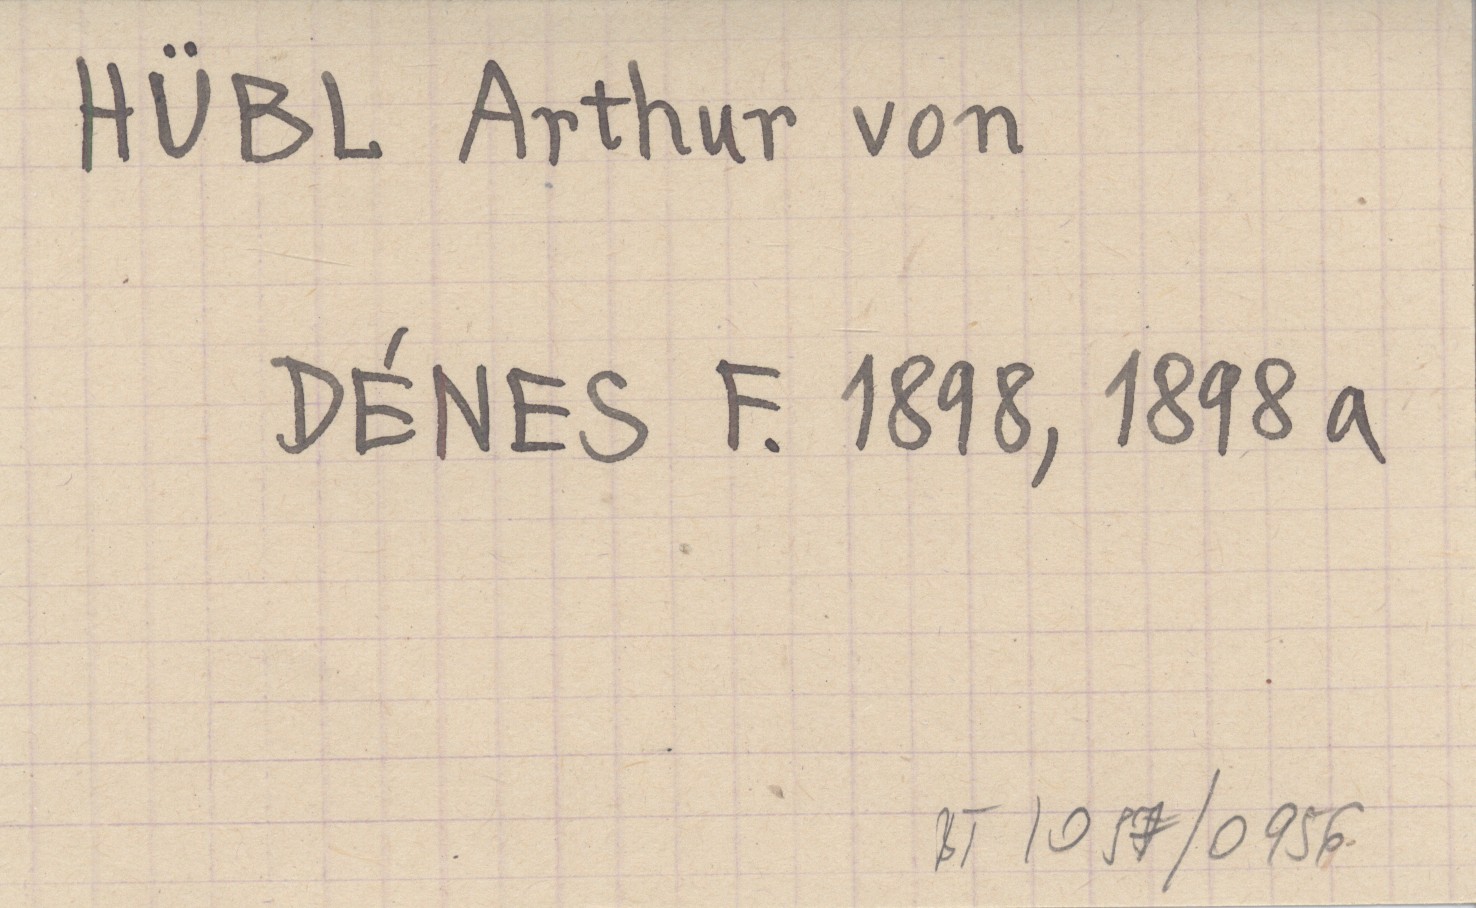 HÜBL Arthur von
DÉNES F. 1898, 1898 a
/0956.